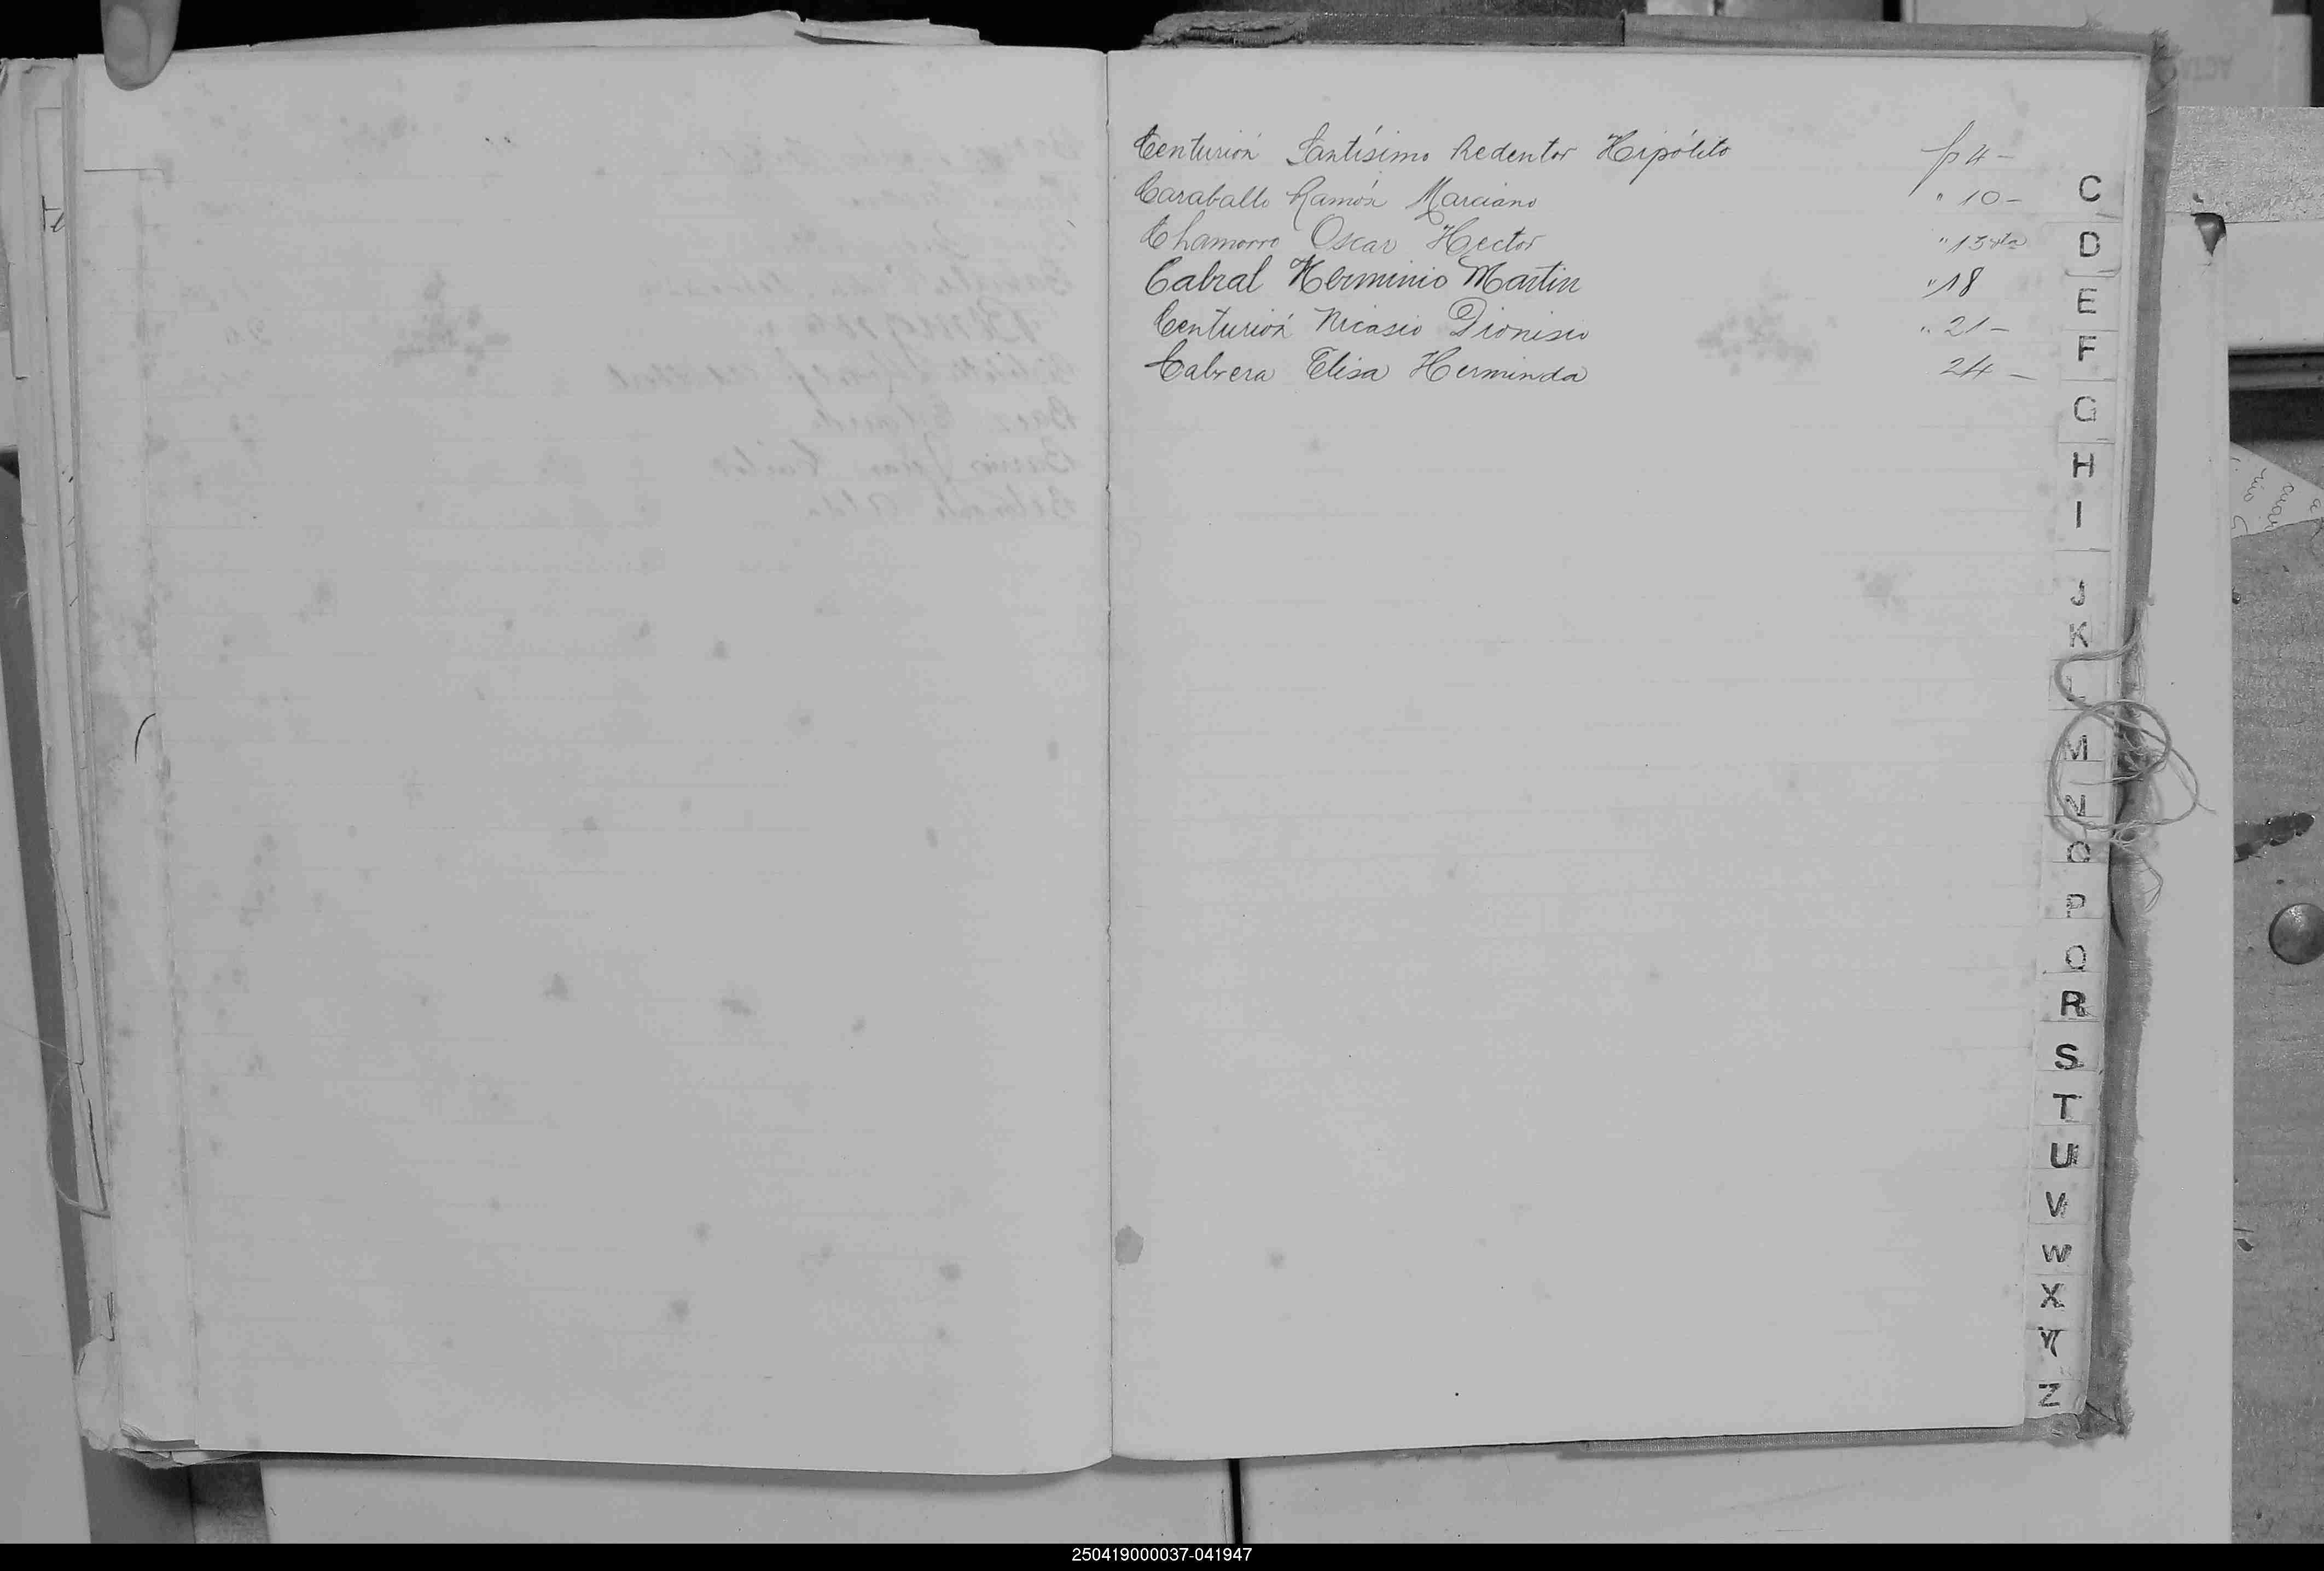 Centurión Santísimo Redentor Hipólito fo 4 -
Caraballo Ramón Marciano " 10 -
Chamorro Oscar Hector " 13 vta
Cabral Herminio Martin " 18
Centurión Nicasio Dionisio " 21 -
Cabrera Elisa Herminda 24 -
C
D
E
F
G
H
I
J
K
L
M
N
O
P
Q
R
S
T
U
V
W
X
Y
Z
250419000037-041947